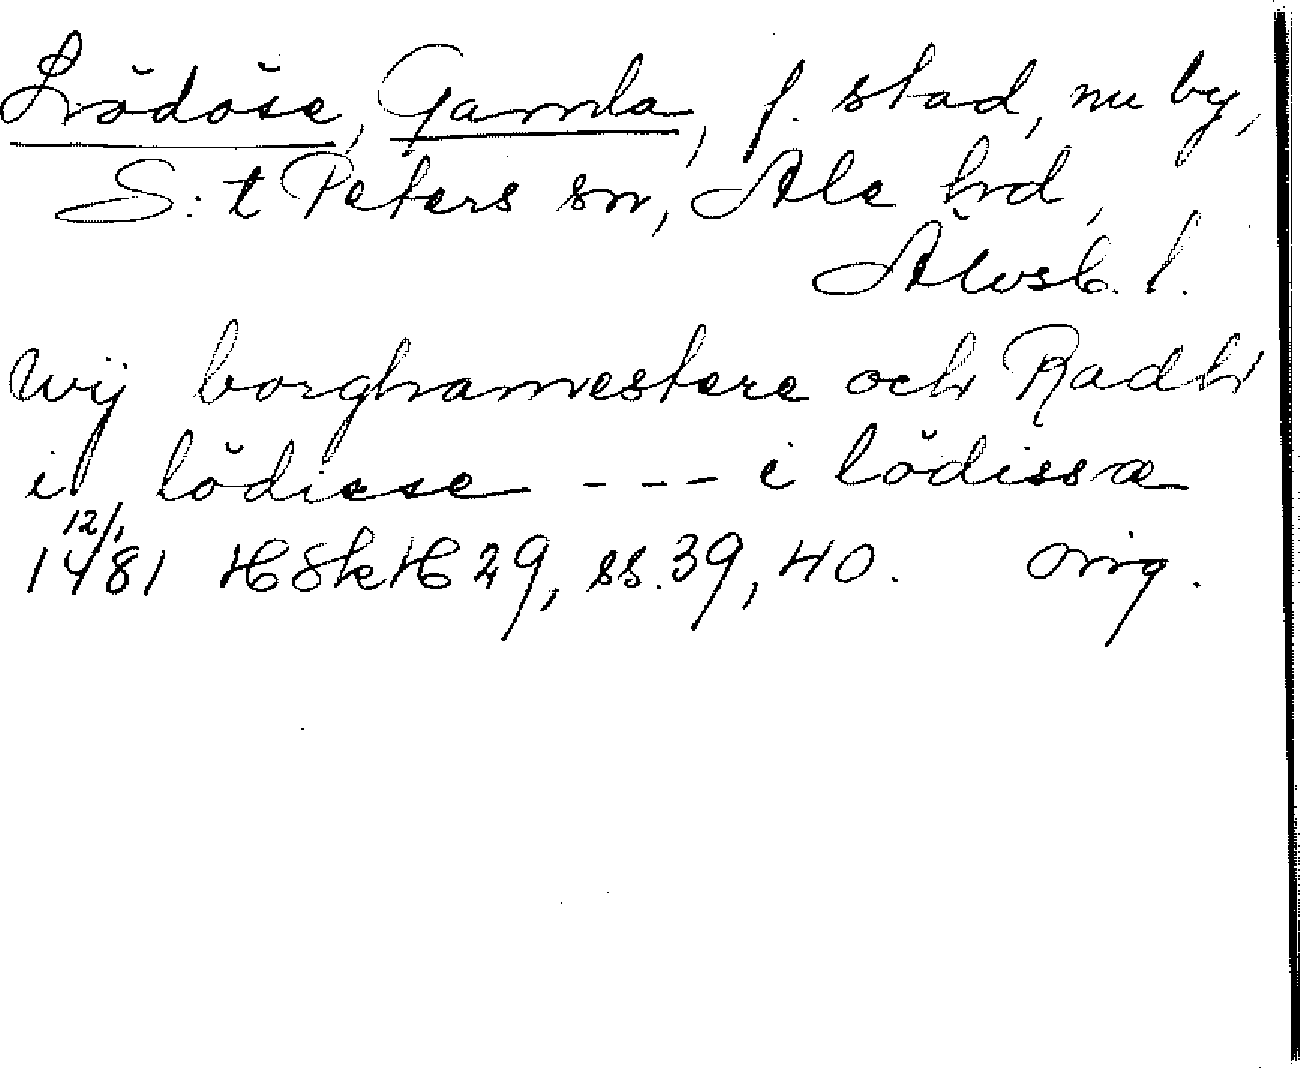 Lödöse, Gamla, f. stad, nu by,
S:t Peters sn, Ale hd,
Älvsb. l.
Wij borghamestere och Radh
i lödiese --- i lödissæ
12/1
1481 HSkH 29, ss. 39, 40. orig.